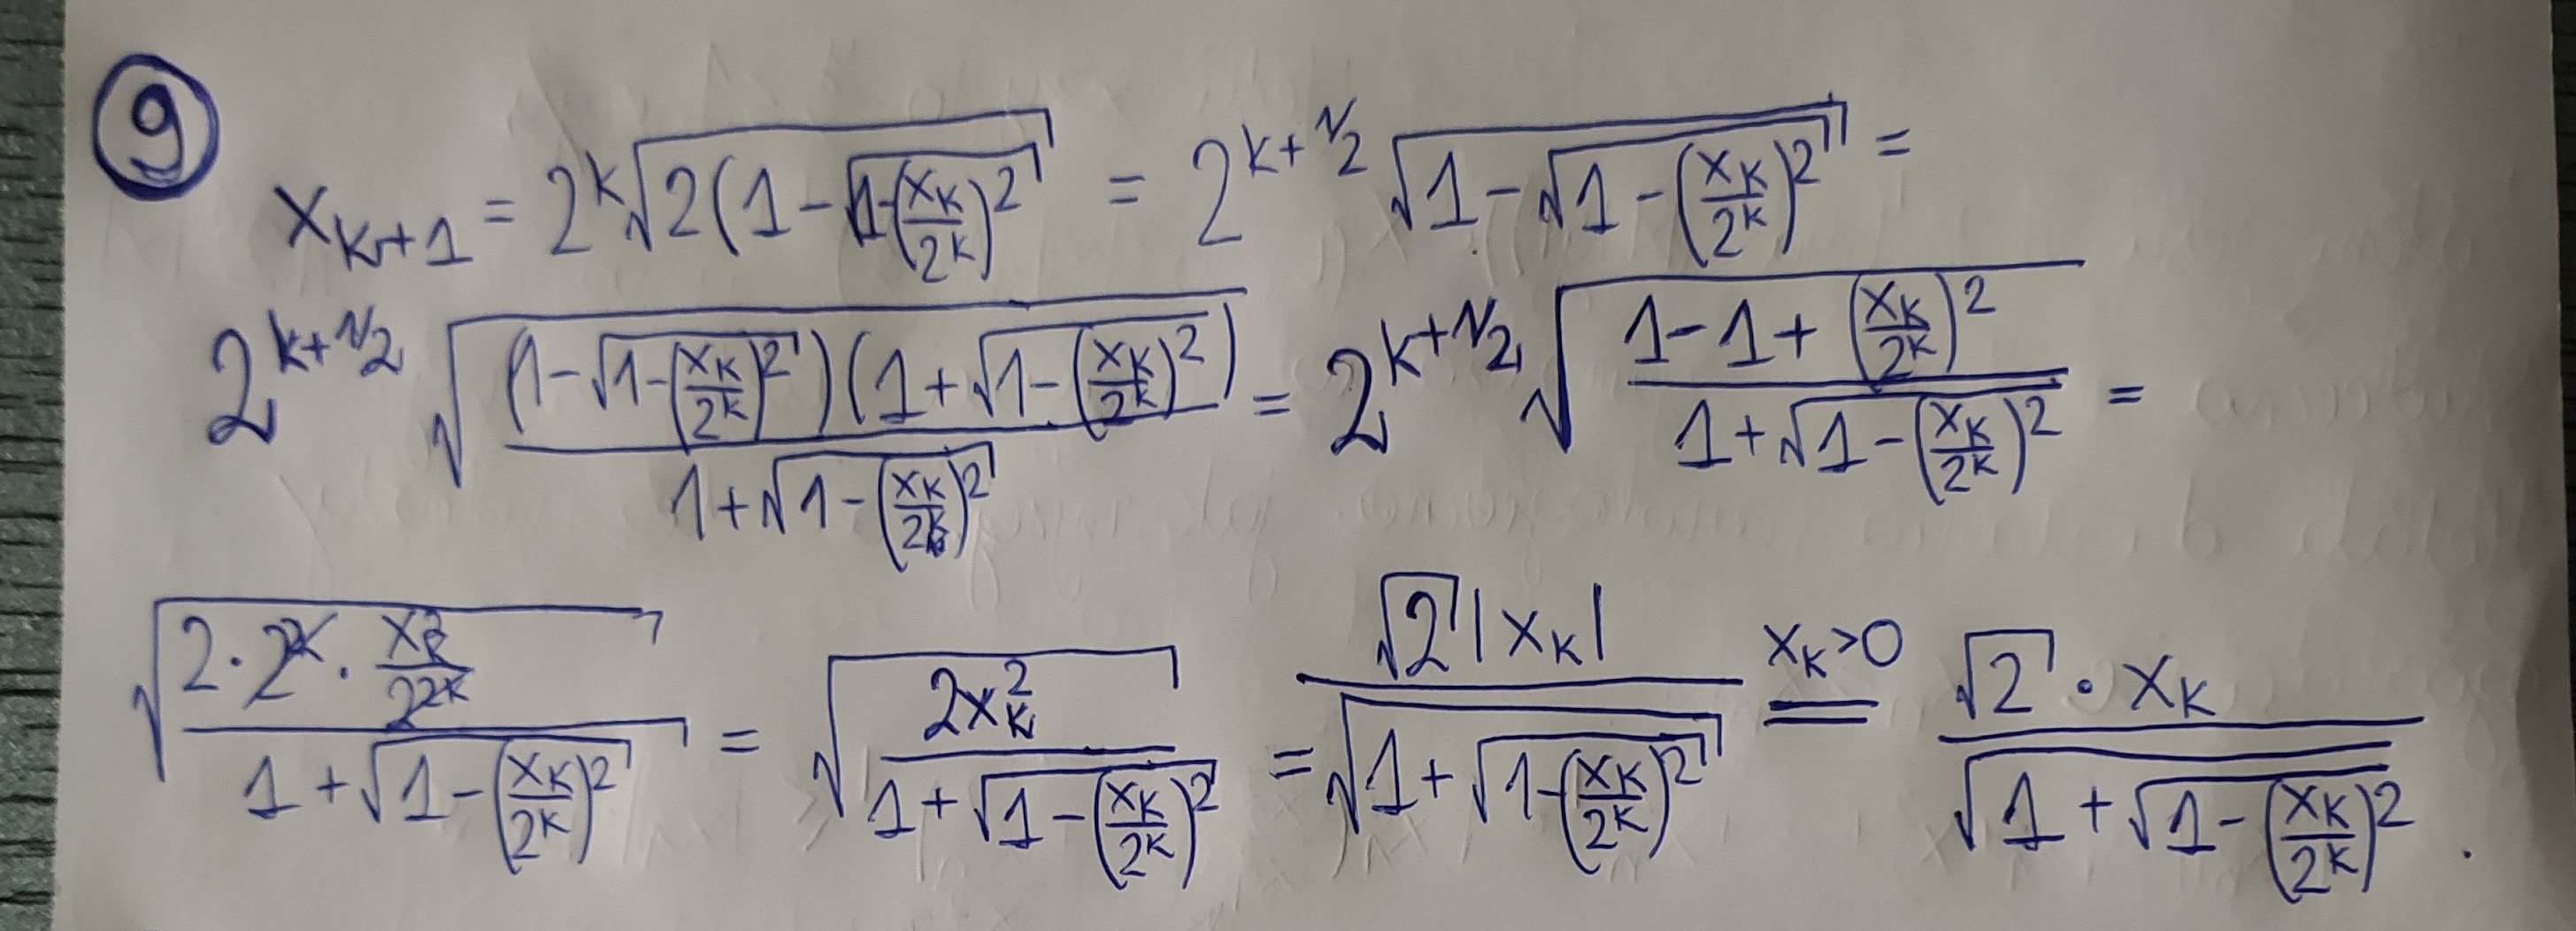 9
x_{k+1} = 2^k √(2(1-√(1-(x_k/2^k)^2)) = 2^{k+1/2} √(1-√(1-(x_k/2^k)^2)) =
2^{k+1/2} √((1-√(1-(x_k/2^k)^2))(1+√(1-(x_k/2^k)^2))/(1+√(1-(x_k/2^k)^2))) = 2^{k+1/2} √((1-1+(x_k/2^k)^2)/(1+√(1-(x_k/2^k)^2))) =
√((2·2^{2k}·x_k^2/2^{2k})/(1+√(1-(x_k/2^k)^2))) = √(2x_k^2/(1+√(1-(x_k/2^k)^2))) = √2|x_k|/√(1+√(1-(x_k/2^k)^2)) = x_k>0 √2·x_k/√(1+√(1-(x_k/2^k)^2)).